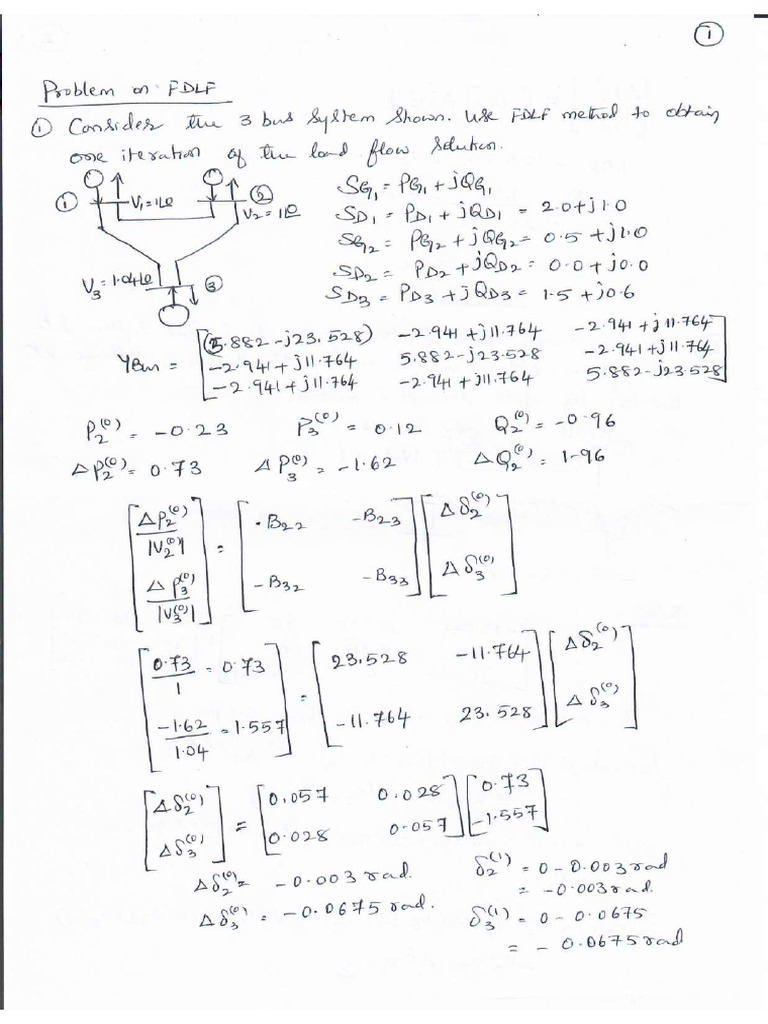 ①
Problem on FDLF
① Consider the 3 bus system shown. Use FDLF method to obtain
one iteration of the load flow solution.
① V₁=1∠0 ② V₂=1∠0
V₃=1.04∠0 ③
SG₁ = PG₁ + jQG₁
SD₁ = PD₁ + jQD₁ = 2.0+j1.0
SG₂ = PG₂ + jQG₂ = 0.5 + j1.0
SD₂ = PD₂ + jQD₂ = 0.0 + j0.0
SD₃ = PD₃ + jQD₃ = 1.5 + j0.6
(5.882 - j23.528) -2.941 + j11.764 -2.941 + j11.764
YBus = -2.941 + j11.764 5.882-j23.528 -2.941+j11.764
-2.941 + j11.764 -2.941 + j11.764 5.882-j23.528
P₂⁽⁰⁾ = -0.23 P₃⁽⁰⁾ = 0.12 Q₂⁽⁰⁾ = -0.96
ΔP₂⁽⁰⁾ = 0.73 ΔP₃⁽⁰⁾ = -1.62 ΔQ₂⁽⁰⁾ = 1.96
[ΔP₂⁽⁰⁾/|V₂⁽⁰⁾|] = [-B₂₂ -B₂₃] [Δδ₂⁽⁰⁾]
[ΔP₃⁽⁰⁾/|V₃⁽⁰⁾|] [-B₃₂ -B₃₃] [Δδ₃⁽⁰⁾]
[0.73/1 = 0.73] = [23.528 -11.764] [Δδ₂⁽⁰⁾]
[-1.62/1.04 = 1.557] [-11.764 23.528] [Δδ₃⁽⁰⁾]
[Δδ₂⁽⁰⁾] = [0.057 0.028] [0.73]
[Δδ₃⁽⁰⁾] [0.028 0.057] [-1.557]
Δδ₂⁽⁰⁾ = -0.003 rad. δ₂⁽¹⁾ = 0 - 0.003 rad
= -0.003 rad.
Δδ₃⁽⁰⁾ = -0.0675 rad. δ₃⁽¹⁾ = 0 - 0.0675
= - 0.0675 rad